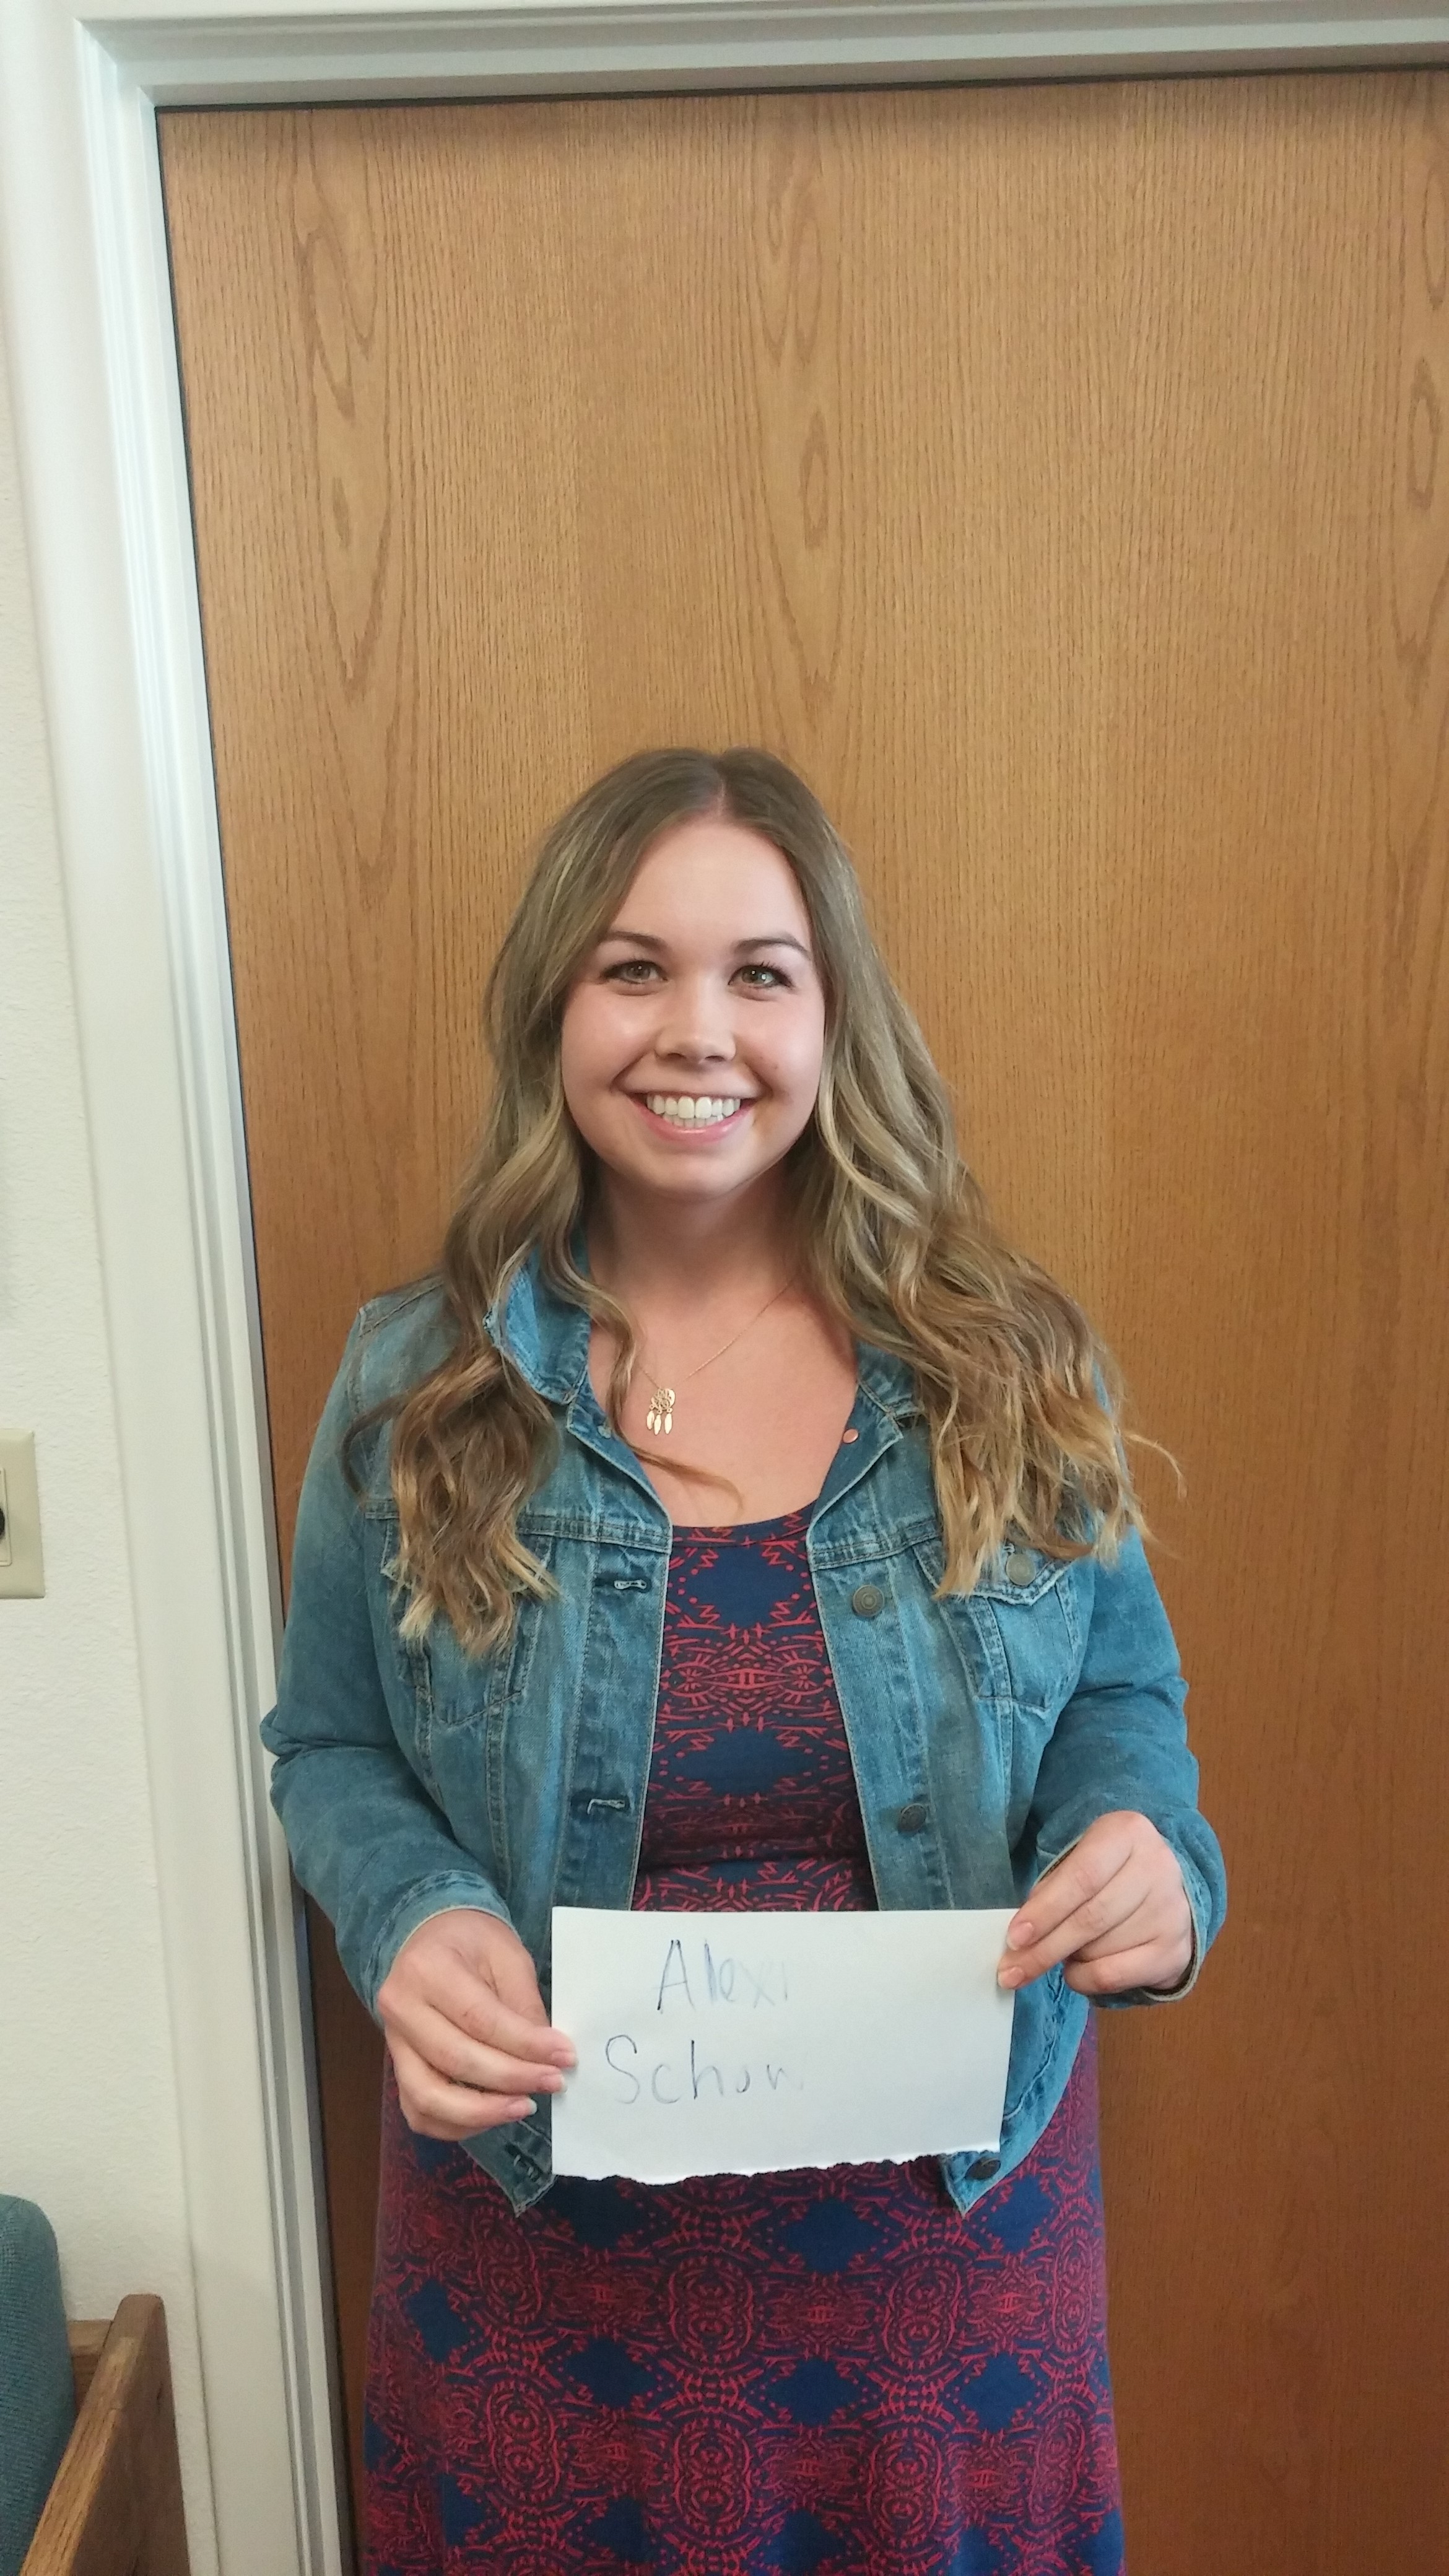 Alexi
Schow